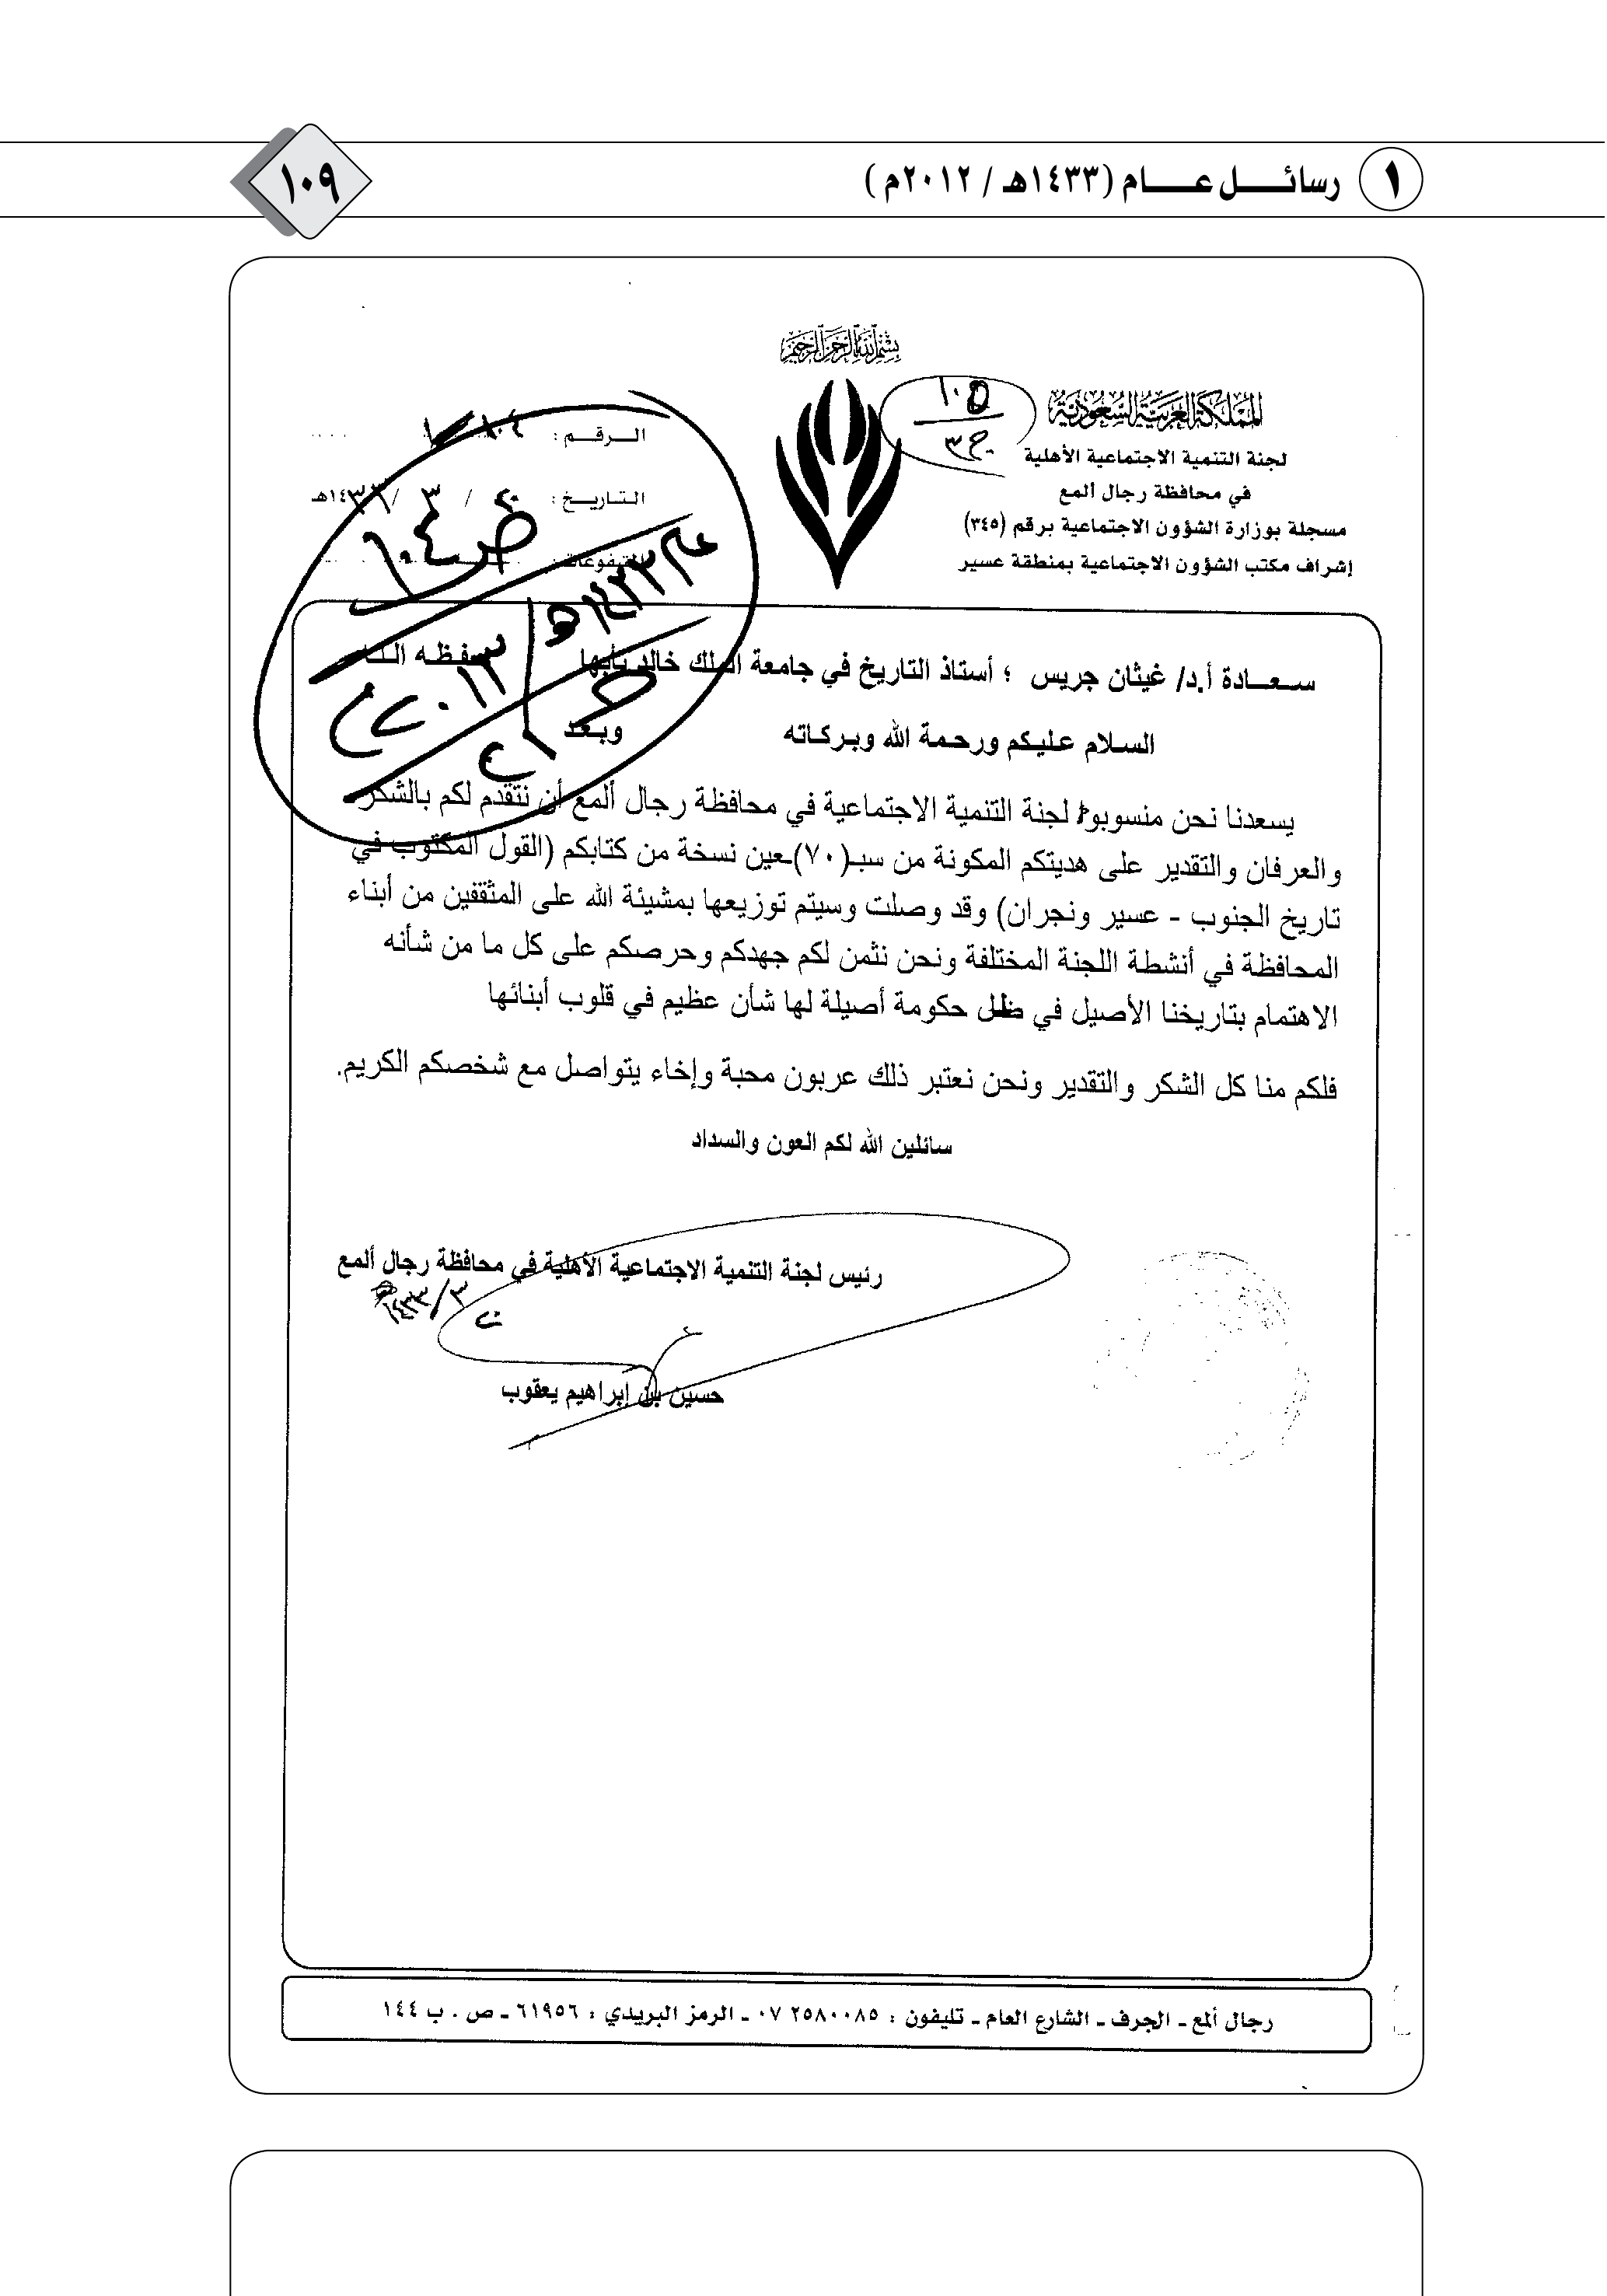 ١ رسائــــل عــــــام (١٤٣٣هـ / ٢٠١٢م)
١٠٩
بسم الله الرحمن الرحيم
المملكة العربية السعودية
لجنة التنمية الاجتماعية الأهلية
في محافظة رجال ألمع
مسجلة بوزارة الشؤون الاجتماعية برقم (٣٤٥)
إشراف مكتب الشؤون الاجتماعية بمنطقة عسير
١٠٥
ج٣
الـــرقـــم : ١٠٤
التـاريــخ : / ٣ / ١٤٣٣هـ
ص١٠٤
عام ١٤٣٣هـ
٢٠١٣م
سـعــادة أ.د/ غيثان جريس ؛ أستاذ التاريخ في جامعة الملك خالد بأبها
السلام عليكم ورحمة الله وبركاته وبعد
يسعدنا نحن منسوبو لجنة التنمية الاجتماعية في محافظة رجال ألمع أن نتقدم لكم بالشكر
والعرفان والتقدير على هديتكم المكونة من سبـ(٧٠)ـعين نسخة من كتابكم (القول المكتوب في
تاريخ الجنوب - عسير ونجران) وقد وصلت وسيتم توزيعها بمشيئة الله على المثقفين من أبناء
المحافظة في أنشطة اللجنة المختلفة ونحن نثمن لكم جهدكم وحرصكم على كل ما من شأنه
الاهتمام بتاريخنا الأصيل في ظل حكومة أصيلة لها شأن عظيم في قلوب أبنائها
فلكم منا كل الشكر والتقدير ونحن نعتبر ذلك عربون محبة وإخاء يتواصل مع شخصكم الكريم.
سائلين الله لكم العون والسداد
رئيس لجنة التنمية الاجتماعية الأهلية في محافظة رجال ألمع
٣/١٤٣٣هـ
حسين بن إبراهيم يعقوب
رجال ألمع ـ الجرف ـ الشارع العام ـ تليفون : ٢٥٨٠٠٨٥ ٠٧ ـ الرمز البريدي : ٦١٩٥٦ ـ ص . ب ١٤٤